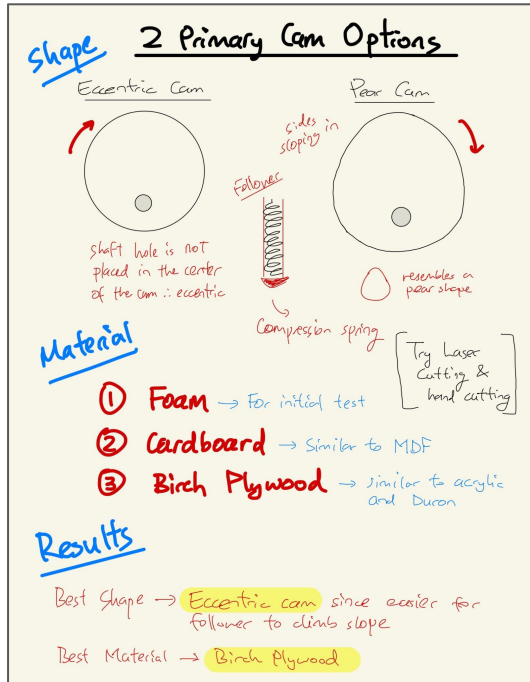 Shape
2 Primary Cam Options
Eccentric Cam
Pear Cam
sides in
sloping
Follower
shaft hole is not
placed in the center
of the cam ∴ eccentric
resembles a
pear shape
Compression spring
Material
Try Laser
Cutting &
hand cutting
① Foam → For initial test
② Cardboard → Similar to MDF
③ Birch Plywood → similar to acrylic
and Duron
Results
Best Shape → Eccentric cam since easier for
follower to climb slope
Best Material → Birch Plywood